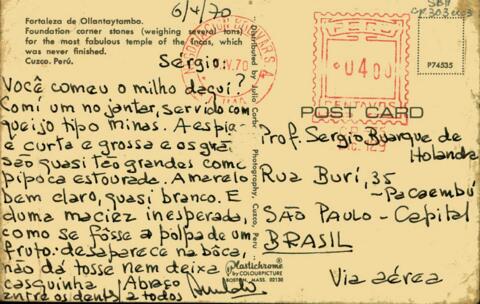 6/4/70
Fortaleza de Ollantaytambo.
Foundation corner stones (weighing several tons)
for the most fabulous temple of the Incas, which
was never finished.
Cuzco. Perú.
Sergio:
Você comeu o milho daqui?
Comi um no jantar, servido com
queijo tipo minas. A espiga
é curta e grossa e os grãos
são quasi tão grandes como
pipoca estourada. Amarelo
bem claro, quasi branco. E
duma maciez inesperada,
como se fôsse a polpa de um
fruto: desaparece na bôca,
não dá tosse nem deixa
casquinha
entre os dents. Abraço
a todos
Distributed by Julio Corbi Photography, Cuzco, Peru
Plastichrome
by COLOURPICTURE
BOSTON, MASS. 02130
PERU
0400
CENTAVOS
P74535
POST CARD
Prof. Sergio Buarque de
Holanda
Rua Burí, 35
- Pacaembú
SÃO PAULO - Capital
BRASIL
Via aérea